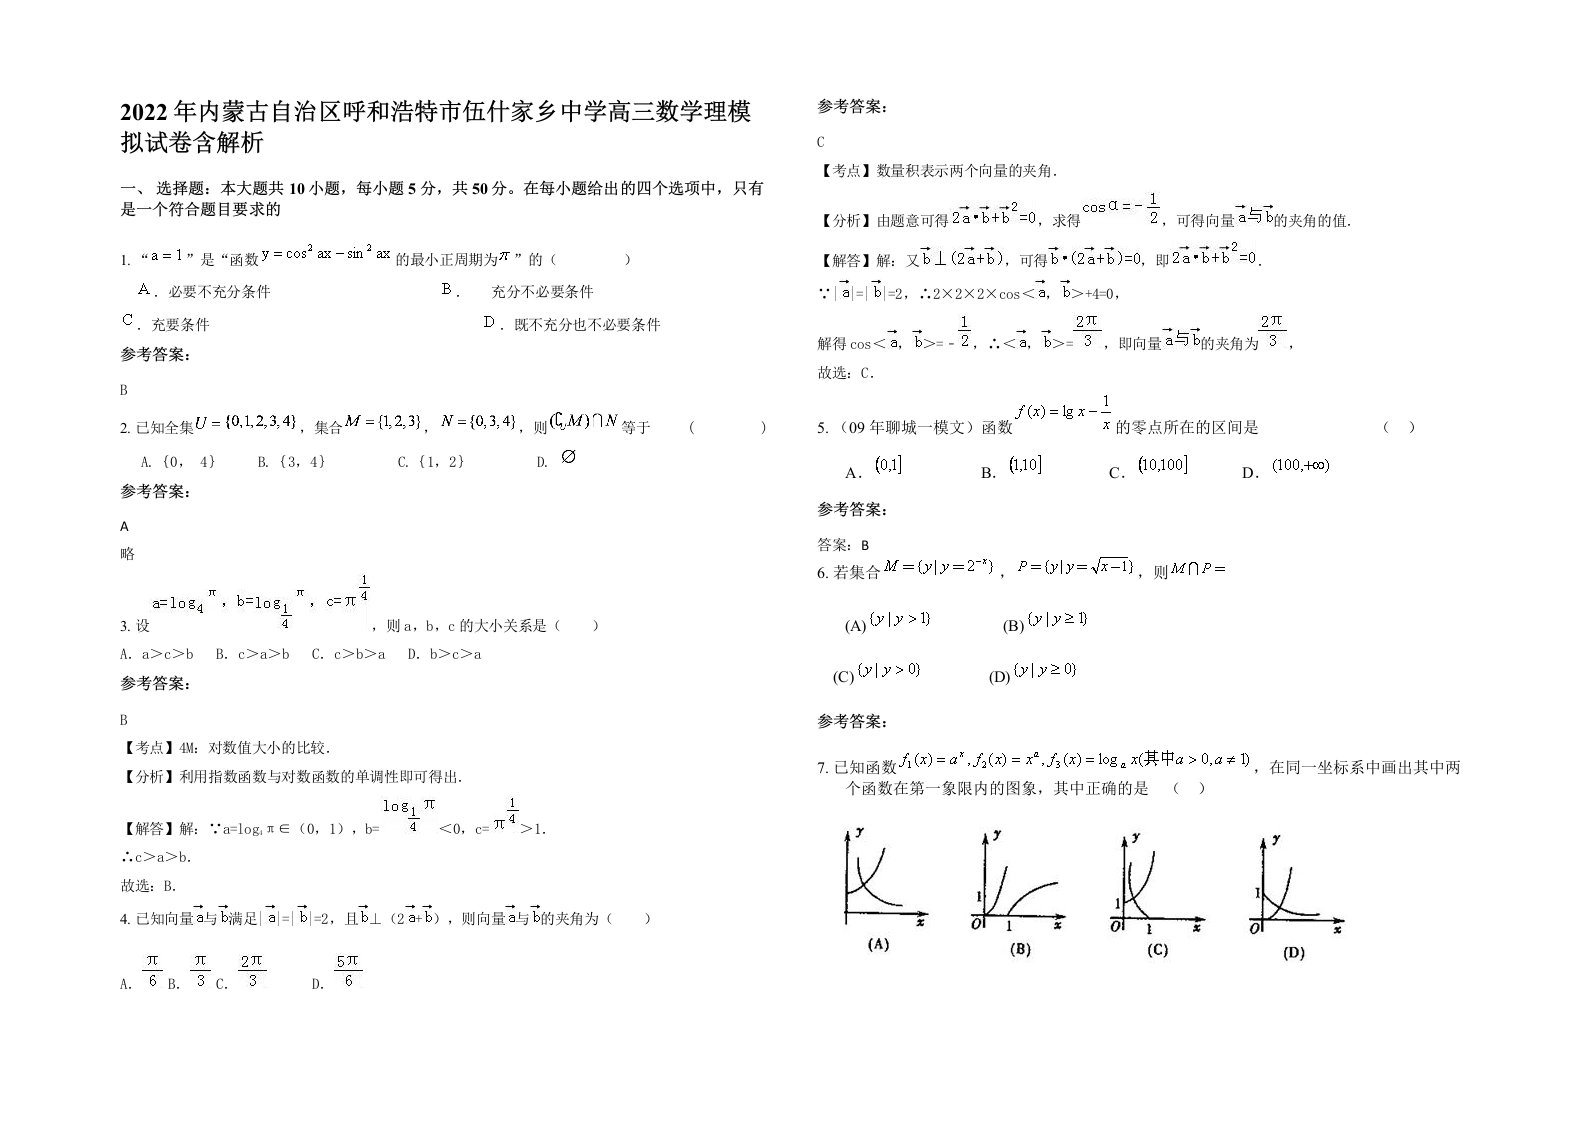 2022 年内蒙古自治区呼和浩特市伍什家乡中学高三数学理模
拟试卷含解析
一、 选择题：本大题共 10 小题，每小题 5 分，共 50 分。在每小题给出的四个选项中，只有
是一个符合题目要求的
1. “a = 1”是“函数 y = cos² ax − sin² ax 的最小正周期为π”的（ ）
A．必要不充分条件 B． 充分不必要条件
C．充要条件 D．既不充分也不必要条件
参考答案：
B
2. 已知全集U = {0,1,2,3,4}，集合M = {1,2,3}，N = {0,3,4}，则(∁UM)∩N 等于 ( )
A. {0， 4} B. {3，4} C. {1，2} D. ∅
参考答案：
A
略
3. 设 a=log₄π，b=log_{1/4}π，c=π^{1/4}，则 a，b，c 的大小关系是（ ）
A．a＞c＞b B．c＞a＞b C．c＞b＞a D．b＞c＞a
参考答案：
B
【考点】4M：对数值大小的比较．
【分析】利用指数函数与对数函数的单调性即可得出．
【解答】解：∵a=log₄π∈（0，1），b=log_{1/4}π＜0，c=π^{1/4}＞1．
∴c＞a＞b．
故选：B．
4. 已知向量a⃗与b⃗满足|a⃗|=|b⃗|=2，且b⃗⊥（2a⃗+b⃗），则向量a⃗与b⃗的夹角为（ ）
A．π/6 B．π/3 C．2π/3 D．5π/6
参考答案：
C
【考点】数量积表示两个向量的夹角．
【分析】由题意可得 2a⃗•b⃗+b⃗²=0，求得 cosα=−1/2，可得向量a⃗与b⃗的夹角的值．
【解答】解：又b⃗⊥(2a⃗+b⃗)，可得b⃗•(2a⃗+b⃗)=0，即2a⃗•b⃗+b⃗²=0．
∵|a⃗|=|b⃗|=2，∴2×2×2×cos＜a⃗，b⃗＞+4=0，
解得 cos＜a⃗，b⃗＞=﹣1/2，∴＜a⃗，b⃗＞=2π/3，即向量a⃗与b⃗的夹角为2π/3，
故选：C．
5. （09 年聊城一模文）函数 f(x) = lg x − 1/x 的零点所在的区间是 （ ）
A．(0,1] B．(1,10] C．(10,100] D．(100,+∞)
参考答案：
答案：B
6. 若集合M = {y | y = 2^{−x}}，P = {y | y = √(x−1)}，则M∩P =
(A) {y | y > 1} (B) {y | y ≥ 1}
(C) {y | y > 0} (D) {y | y ≥ 0}
参考答案：
7. 已知函数 f₁(x) = a^x, f₂(x) = x^a, f₃(x) = log_a x(其中a > 0, a ≠ 1)，在同一坐标系中画出其中两
个函数在第一象限内的图象，其中正确的是 （ ）
y x (A)
y 1 O 1 x (B)
y 1 O 1 x (C)
y 1 O x (D)